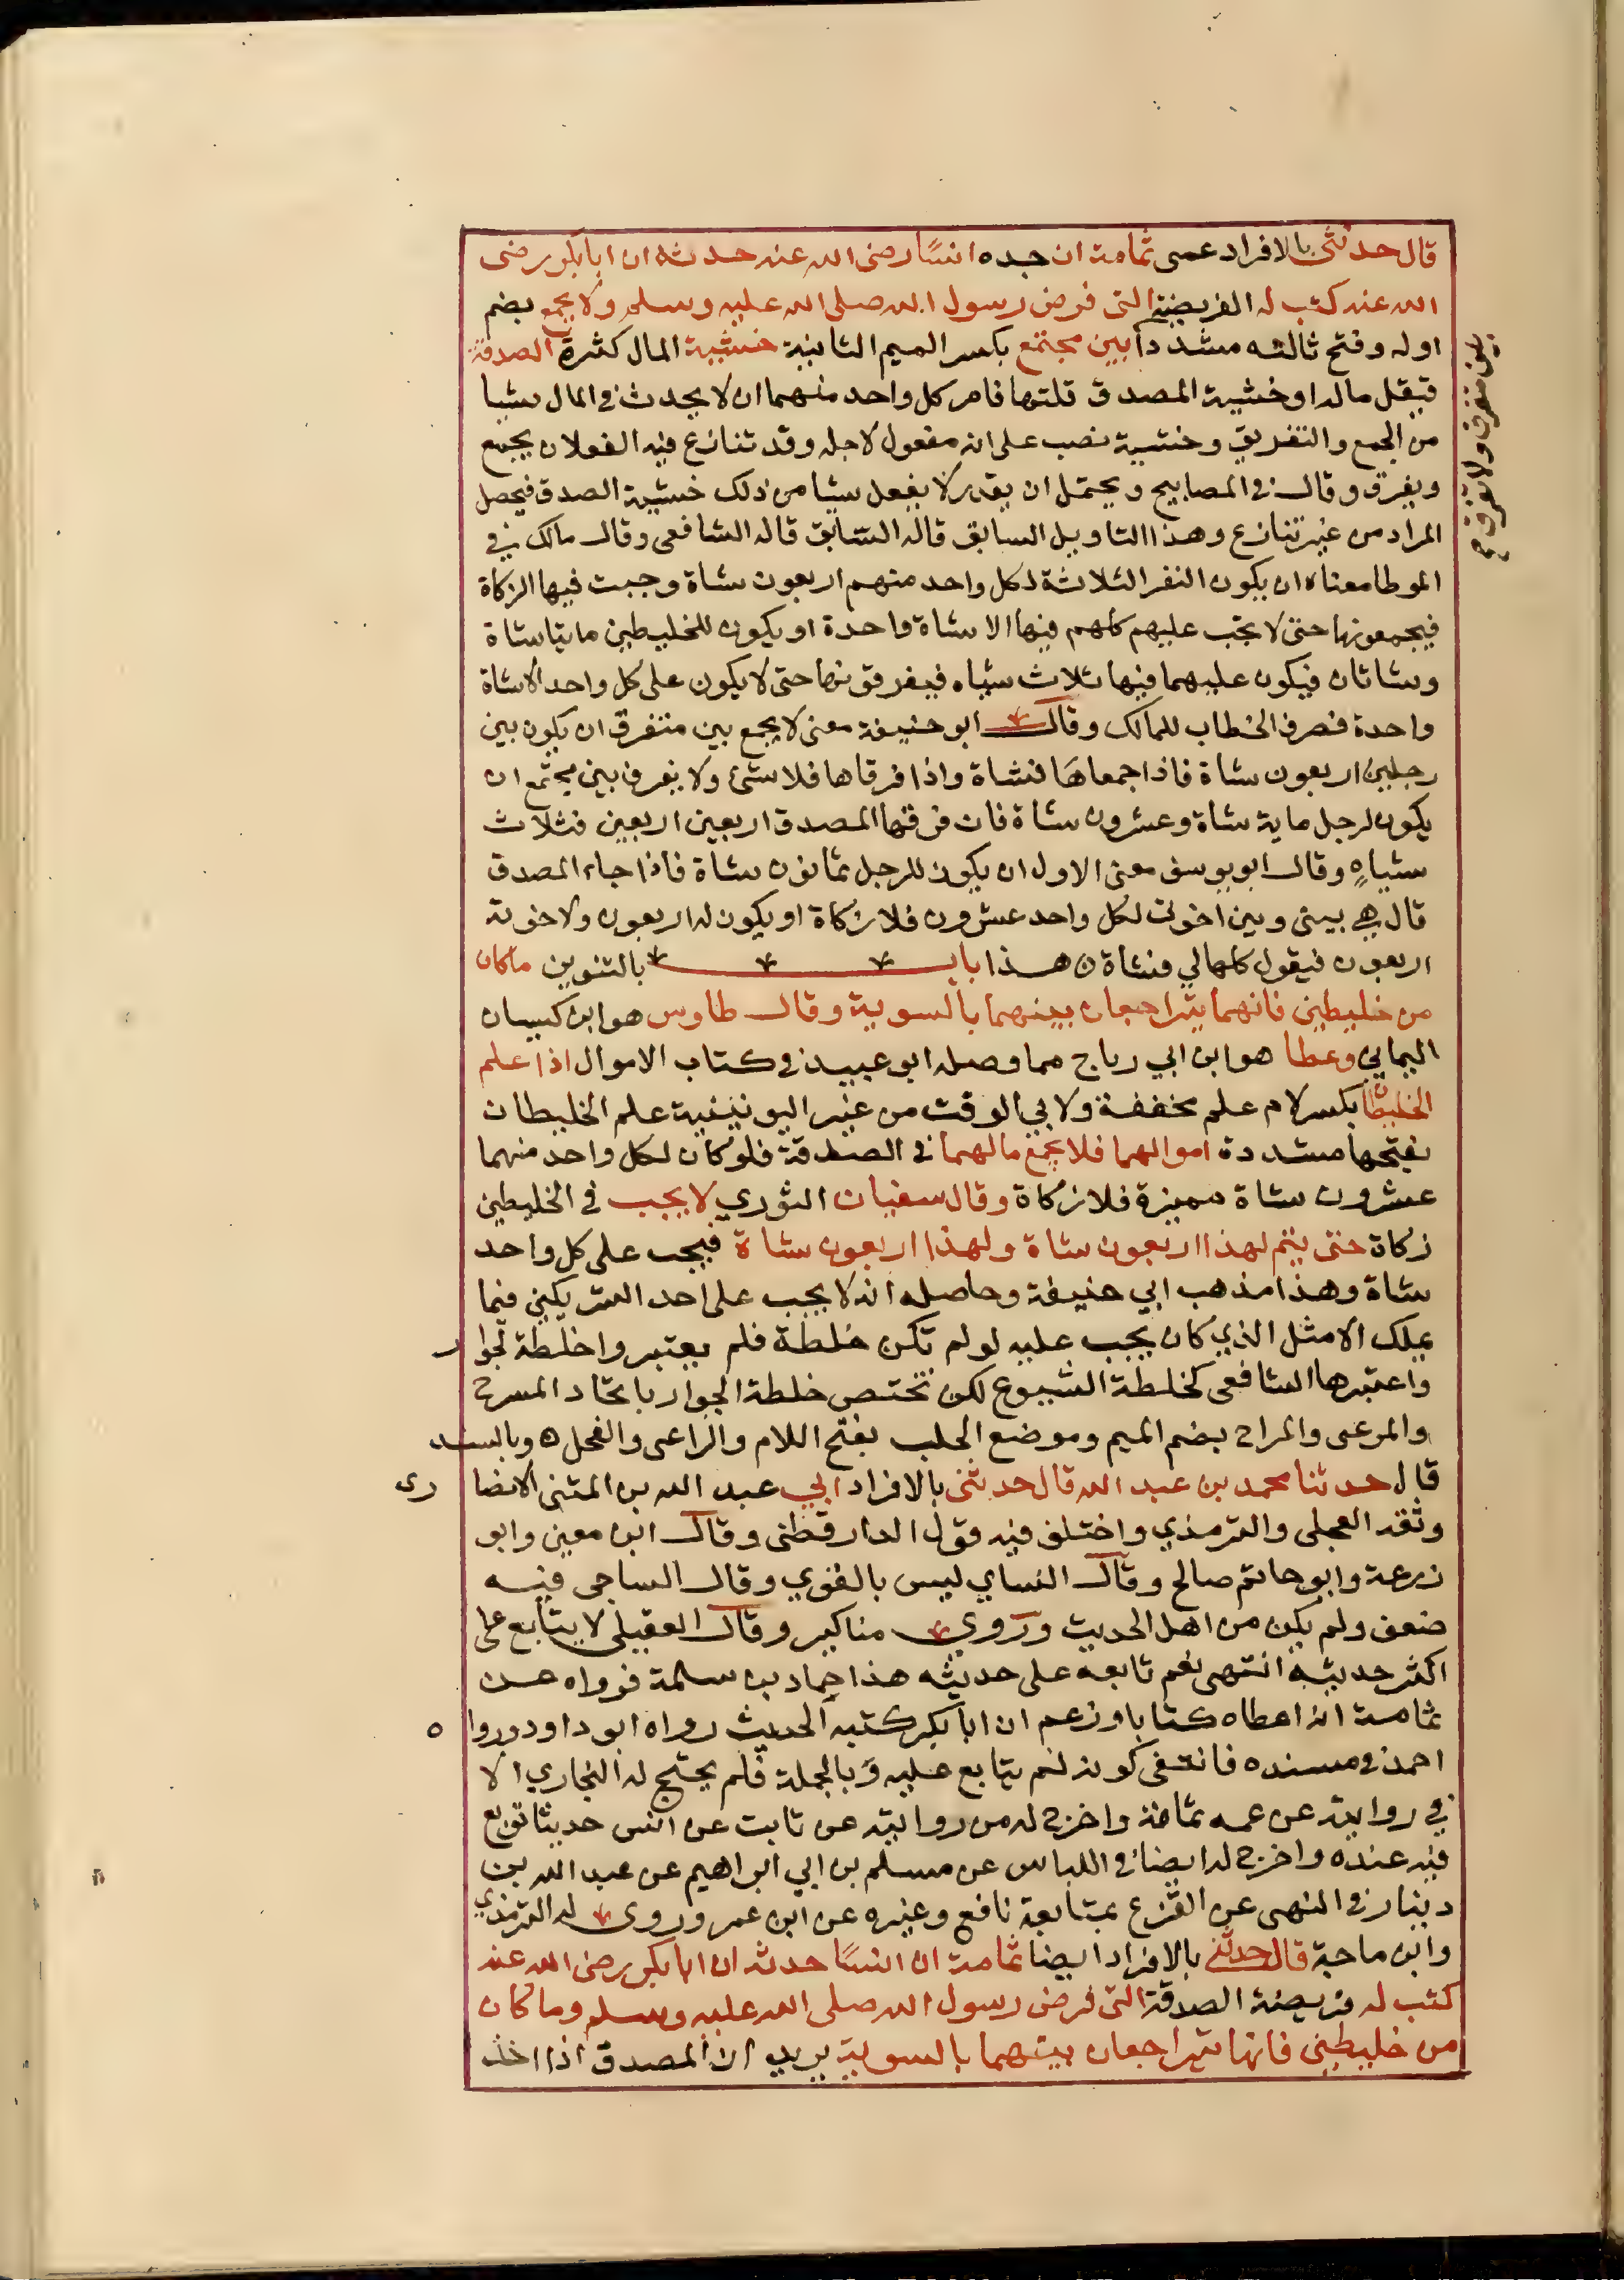 قال حدثني بالافراد عمى ثمامة ان جده انسًا رضى الله عنه حدثه ان ابا بكر رضى
الله عنه كتب له الفريضة التى فرض رسول الله صلى الله عليه وسلم ولا يجمع بضم
اوله وفتح ثالثه مشددا بين مجتمع بكسر الميم الثانية خشية المال كثرة الصدقة
فيقل ماله او خشية المصدق قلتها فامر كل واحد منهما ان لا يحدث في المال شيا
من الجمع والتفريق وخشية نصب على انه مفعول لاجله وقد تنازع فيه الفعلان يجمع
ويفرق وقال في المصابيح ويحتمل ان يقدر لا يفعل شيا من ذلك خشية الصدق فيحصل
المراد من غير تنازع وهذا التاويل السابق قاله السابق قاله الشافعى وقال مالك في
الموطا معناه ان يكون النفر الثلاثة لكل واحد منهم اربعون شاة وجبت فيها الزكاة
فيجمعونها حتى لا يجب عليهم كلهم فيها الا شاة واحدة او يكون للخليطين مايتا شاة
وشاتان فيكون عليهما فيها ثلاث شياه فيفرقونها حتى لا يكون على كل واحد الا شاة
واحدة فصرف الخطاب للمالك وقال ابو حنيفة معنى لا يجمع بين متفرق ان يكون بين
رجلين اربعون شاة فاذا جمعاها فشاة واذا فرقاها فلا شئ ولا يفرق بين مجتمع ان
يكون لرجل ماية شاة وعشرون شاة فان فرقها المصدق اربعين اربعين فثلاث
شياهٍ وقال ابو يوسف معنى الاول ان يكون للرجل ثمانون شاة فاذا جاء المصدق
قال هي بيني وبين اخوتي لكل واحد عشرون فلا زكاة او يكون له اربعون ولاخوته
اربعون فيقول كلها لي فشاة ن هذا باب بالتنوين ماكان
من خليطين فانهما يتراجعان بينهما بالسوية وقال طاوس هو ابن كيسان
اليماني وعطا هو ابن ابي رباح مما وصله ابو عبيد في كتاب الاموال اذا علم
الخليطا بكسر لام علم مخففة ولابي الوقت من غير اليونينية علم الخليطان
بفتحها مشددة اموالهما فلا يجمع مالهما في الصدقة فلو كان لكل واحد منهما
عشرون شاة مميزة فلا زكاة وقال سفيان الثوري لا يجب في الخليطين
زكاة حتى يتم لهذا اربعون شاة ولهذا اربعون شاة فيجب على كل واحد
شاة وهذا مذهب ابي حنيفة وحاصله انه لا يجب على احد الشريكين فيما
يملك الا مثل الذي كان يجب عليه لو لم تكن خلطة فلم يعتبروا خلطة لجوا ر
واعتبرها الشافعى كخلطة الشيوع لكن تختص خلطة الجوار باتحاد المسرح
والمرعى والمراح بضم الميم وموضع الحلب بفتح اللام والراعى والفحل ه وبالسند
قال حدثنا محمد بن عبد الله قال حدثنى بالافراد ابي عبد الله بن المثنى الانصا رى
وثقه العجلى والترمذي واختلف فيه قول الدارقطنى وقال ابن معين وابو
زرعة وابو حاتم صالح وقال النساي ليس بالقوي وقال الساجى فيه
ضعف ولم يكن من اهل الحديث وروى مناكير وقال العقيلى لا يتابع على
اكثر حديثه انتهى نعم تابعه على حديثه هذا حماد بن سلمة فرواه عن
ثمامة انه اعطاه كتابا وزعم ان ابا بكر كتبه الحديث رواه ابو داود وروا ه
احمد في مسنده فانتفى كونه لم يتابع عليه وبالجملة فلم يحتج له البخاري الا
في روايته عن عمه ثمامة واخرج له من روايته عن ثابت عن انس حديثا توبع
فيه عنده واخرج له ايضا في اللباس عن مسلم بن ابي ابراهيم عن عبد الله بن
دينار في النهى عن القزع بمتابعة نافع وغيره عن ابن عمر وروى له الترمذي
وابن ماجة قال حدثني بالافراد ايضا ثمامة ان انسًا حدثه ان ابا بكر رضى الله عنه
كتب له فريضة الصدقة التى فرض رسول الله صلى الله عليه وسلم وما كان
من خليطين فانهما يتراجعان بينهما بالسوية يريد ان المصدق اذا اخذ
بين متفرق ولا يفرق صح